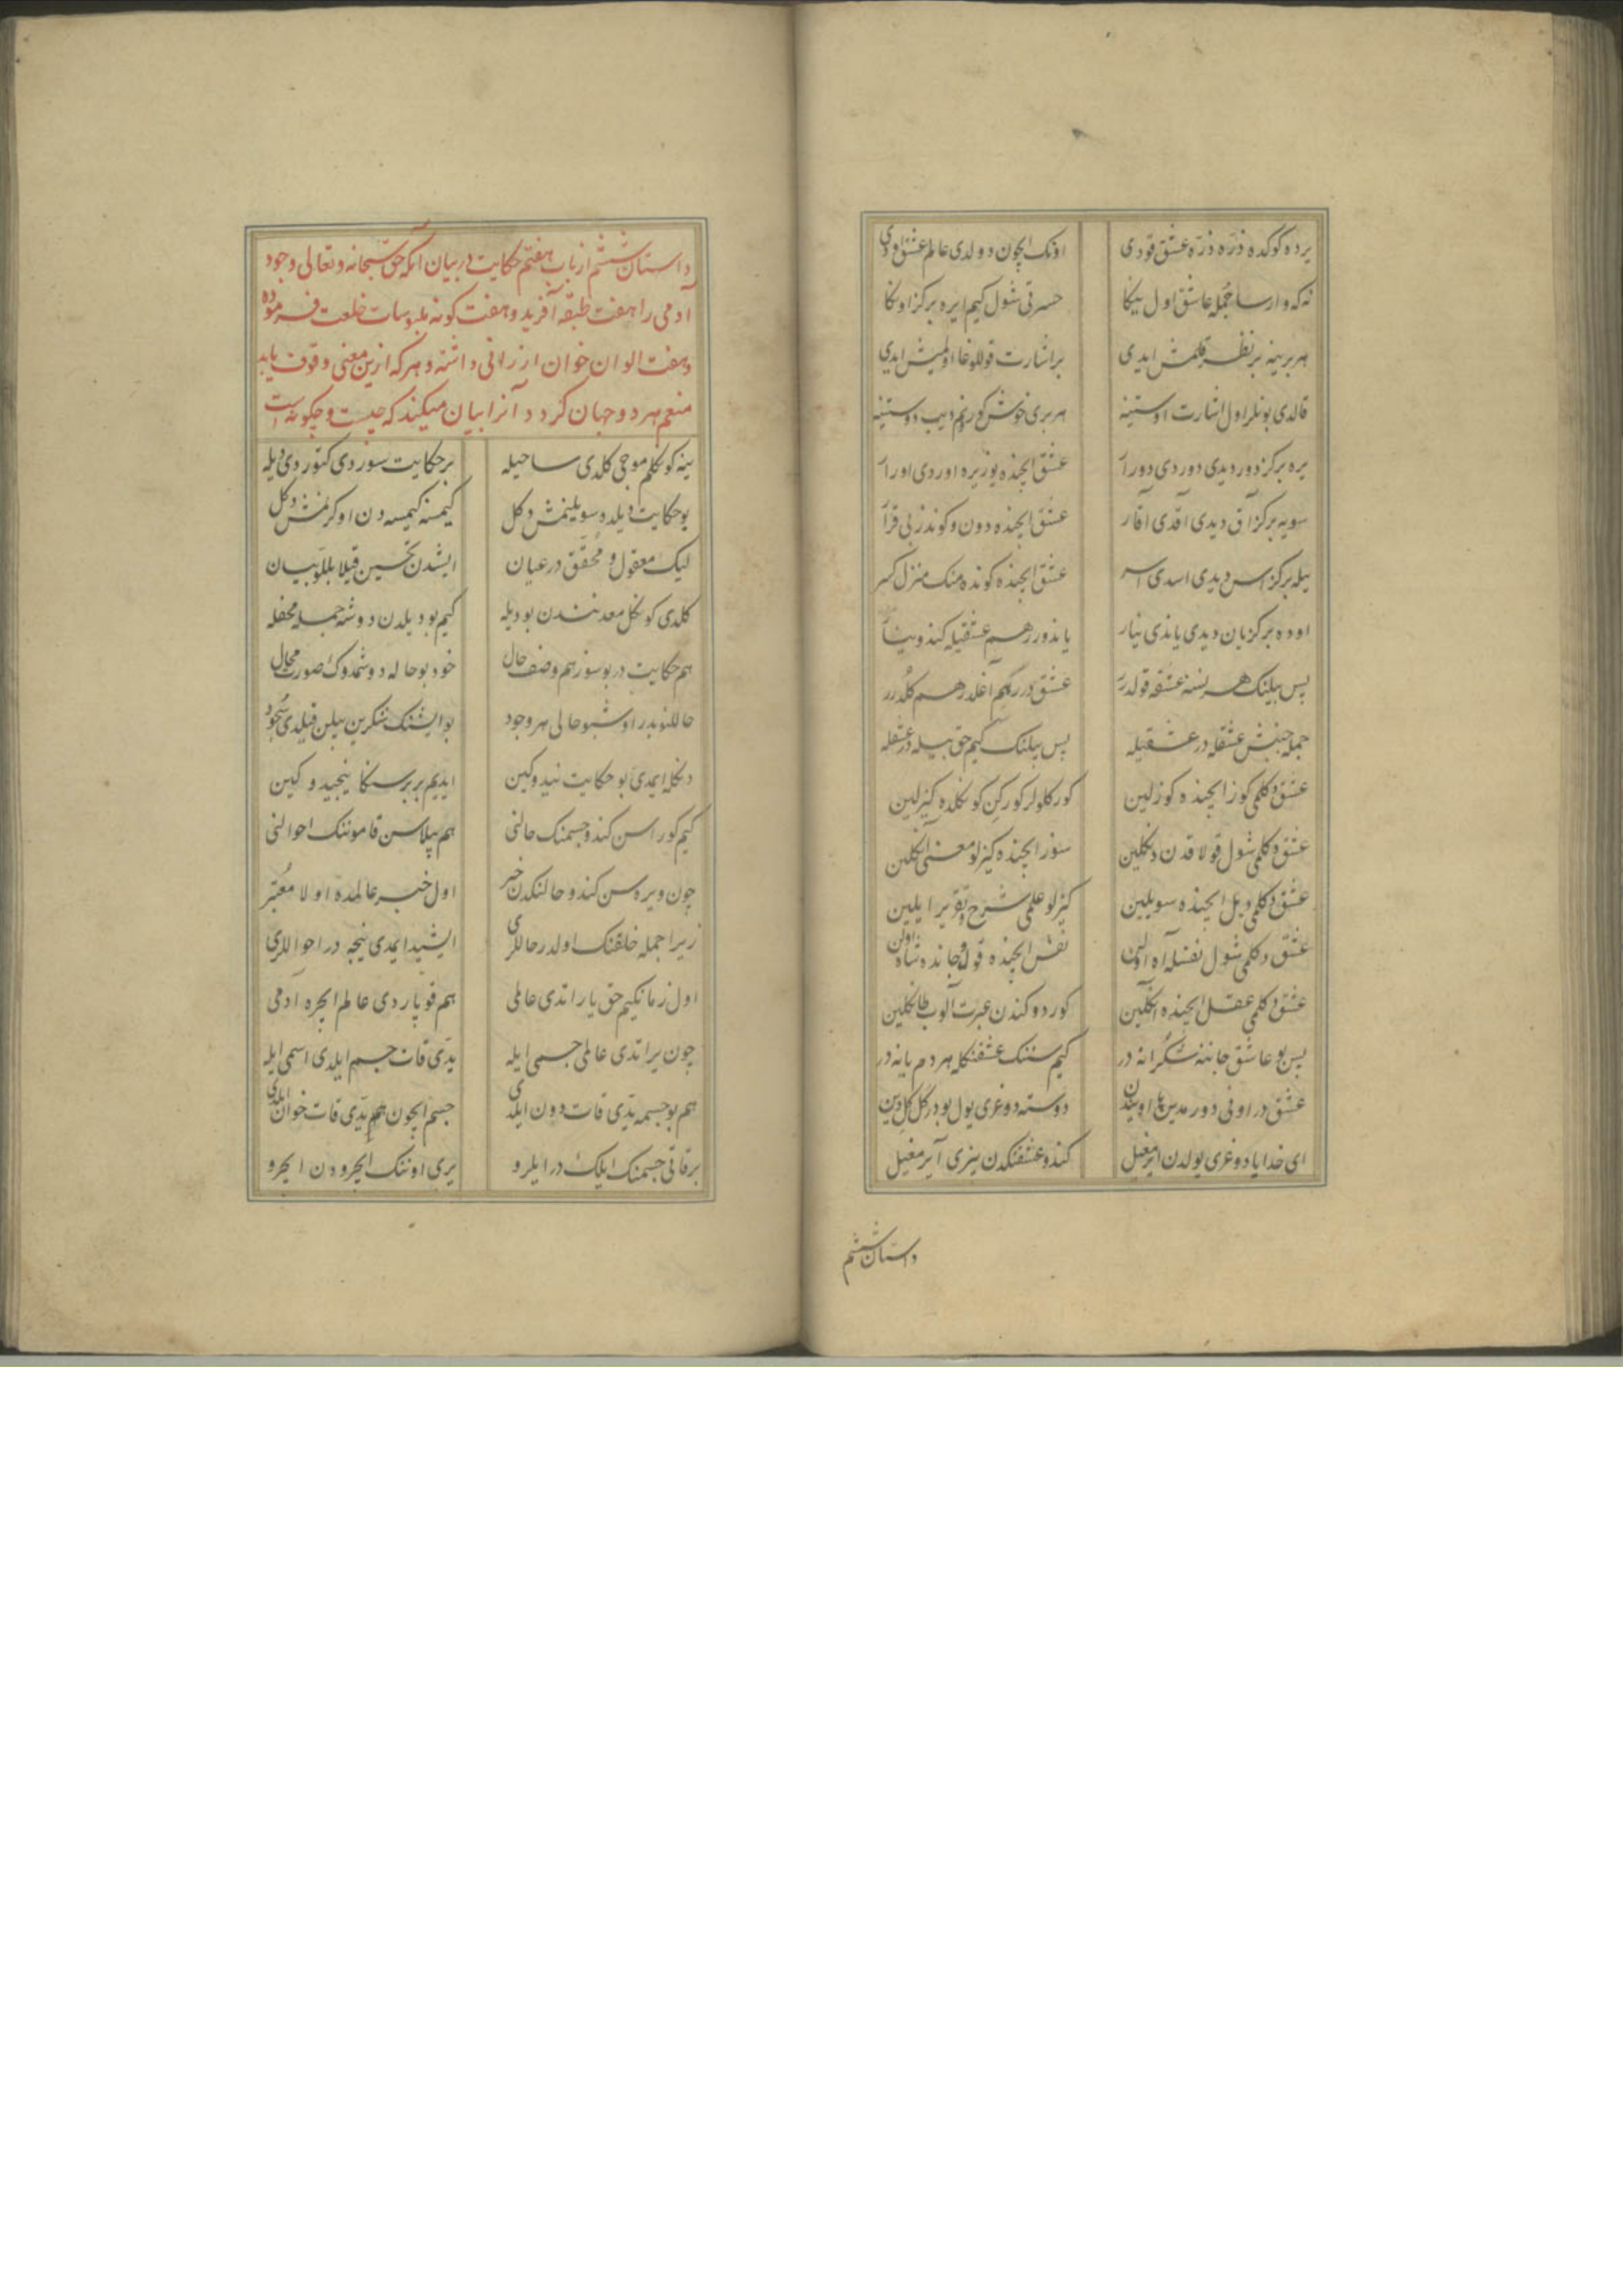 یرده کوکده ذرّه ذرّه عشق قودی اونک ایچون دولدی عالم عشق اودی
نه که وارسا جمله عاشق اول بیکا حسرتی شول کیم ایره برکز اوکا
هر برینه بر نظر قلمش ایدی بر اشارت قوللوغا اولمیش ایدی
قالدی بونلر اول اشارت اوستینه هر بری خوش کورنم دیب دوستینه
یره برکز دور دیدی دوردی دورر عشق ایچنده یوز یره اوردی اورر
سویه برکز آق دیدی آقدی آقار عشق ایچنده دون و کوندز
ییله برکز اس دیدی اسدی اسر عشق ایچنده کونده منک منزل کسر
اوده برکز یان دیدی یاندی ینار یاندورر هم عشقیله کندو ینار
پس بیلنک هر نسنه عشقه قولدرر عشق درر کیم آغلدر هم کلدرر
جمله جنبش عشقله در عشقیله پس بیلنک کیم حق بیله در عشقله
عشق دکلمی کوز ایچنده کوزلین کورکلولر کورکین کوکلده کیزلین
عشق دکلمی شول قولاقدن دکلین سوز ایچنده کیزلو معنی آکلین
عشق دکلمی دیل ایچنده سویلین کیزلو علمی شرح و تقریر ایلین
عشق دکلمی شول نفسله آه اولین نفس ایچنده قول و جانده شاه اولن
عشق دکلمی عقل ایچنده آکلین کوردوکندن عبرت آلوب طاکلین
پس بو عاشق جاننه شکرانه در کیم سننک عشقنکله هر دم یانه در
عشق در اونی دوستنه دوغری یول بودر کل کل دین
ای خدایا دوغری یولدن ایرمغیل کندو عشقنکدن بیزی آیرمغیل
داستان ششم
داستان ششم از باب هفتم حکایت در بیان آنکه حق سبحانه و تعالی وجود
آدمی را هفت طبقه آفرید و هفت کونه ملبوسات خلعت فرموده
و هفت الوان خوان ارزانی داشته و هر که ازین معنی وقوف یابد
منعم هر دو جهان کردد آنرا بیان میکند که چیست و چکونه است
ینه کوکلم موجی کلدی ساحیله بر حکایت سوزدی کتوردی دیله
بو حکایت دیلده سویلینمش دکل کیمسنه کیمسه دن اوکرنمش دکل
لیک معقول و محقق در عیان ایشیدن تحسین قیلا بللو بیان
کلدی کوکل معدنندن بو دیله کیم بو دیلدن دوشه جمله محفله
هم حکایت در بو سوز هم وصف حال خود بو حاله دوشمدوک صورت محال
حاللنوبدر اوشبو حالی هر وجود بو ایشنک شکرین بیلن قیلدی سجود
دکله ایمدی بو حکایت نیدوکین ایدیم بر بر سکا نیجیدوکین
کیم کوراسن کندو جسمنک حالنی هم بیلاسن قاموننک احوالنی
چون ویره سن کندو حالنکدن خبر اول خبر عالمده اولا معتبر
زیرا جمله خلقنک اولدر حاللری ایشید ایمدی نیجه در احواللری
اول زمانکیم حق یاراتدی عالمی هم قوپاردی عالم ایچره آدمی
چون یراتدی عالمی جسمی ایله یدی قات جسم ایلدی اسمی ایله
هم بو جسمه یدی قات دون ایلدی جسم ایچون هم یدی قات خوان ایلدی
بر قاتی جسمنک ایلک در ایلرو یری اوننک ایچرودن ایچرو